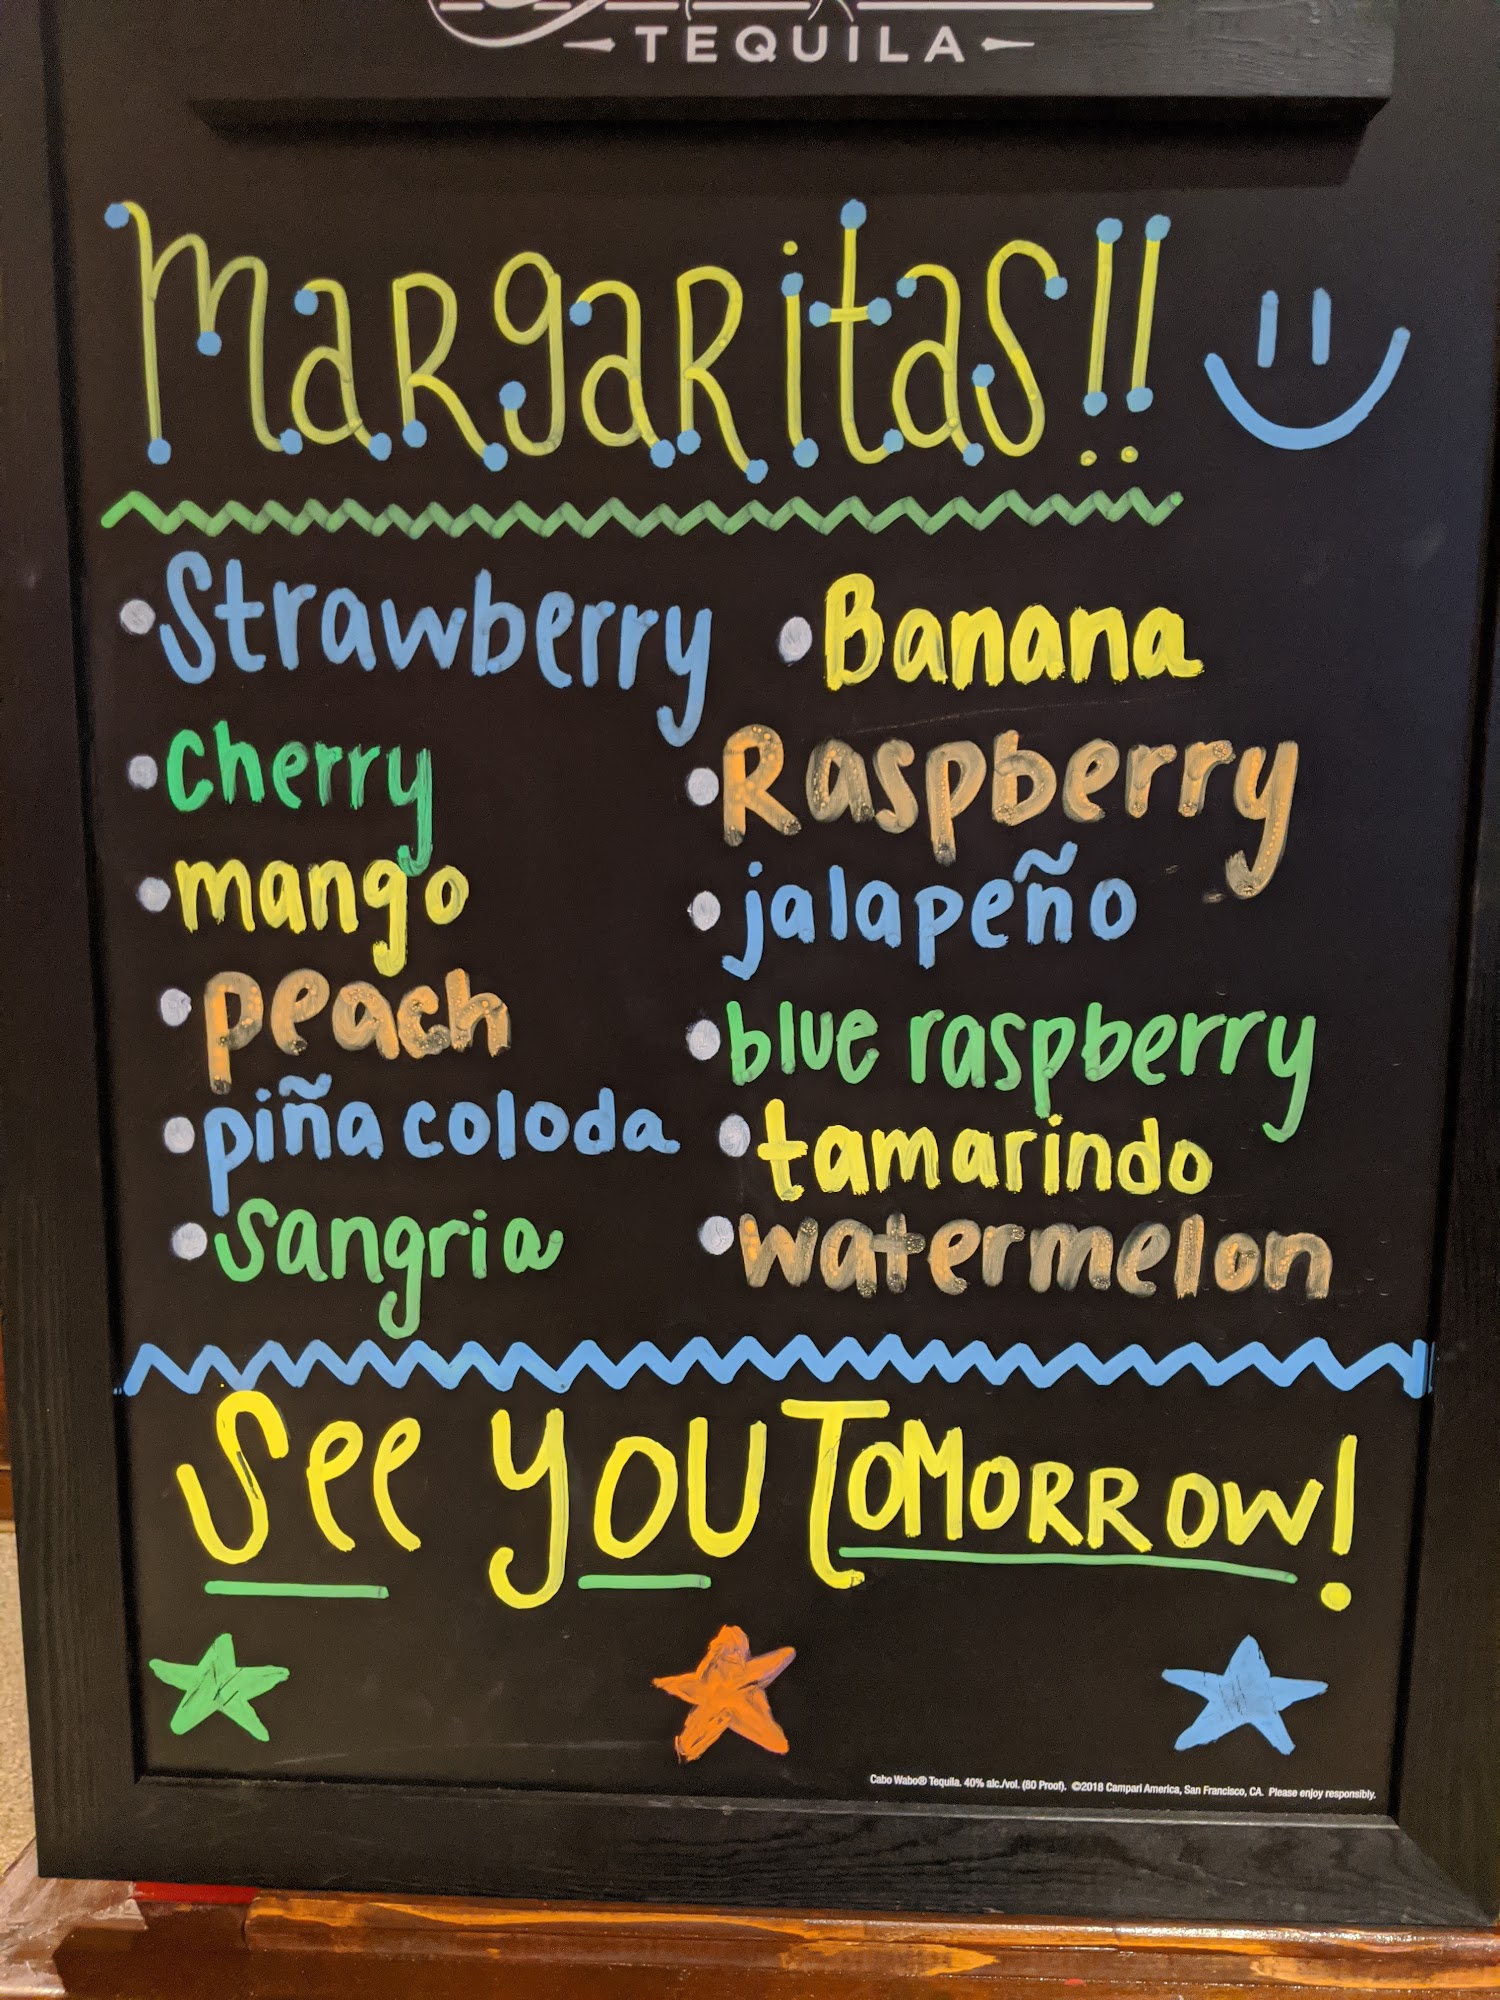 TEQUILA
Margaritas!!
• Strawberry
• Cherry
• mango
• peach
• piña coloda
• Sangria
• Banana
• Raspberry
• jalapeño
• blue raspberry
• tamarindo
• watermelon
See you TOMORROW!
Cabo Wabo® Tequila. 40% alc./vol. (80 Proof). ©2018 Campari America, San Francisco, CA. Please enjoy responsibly.